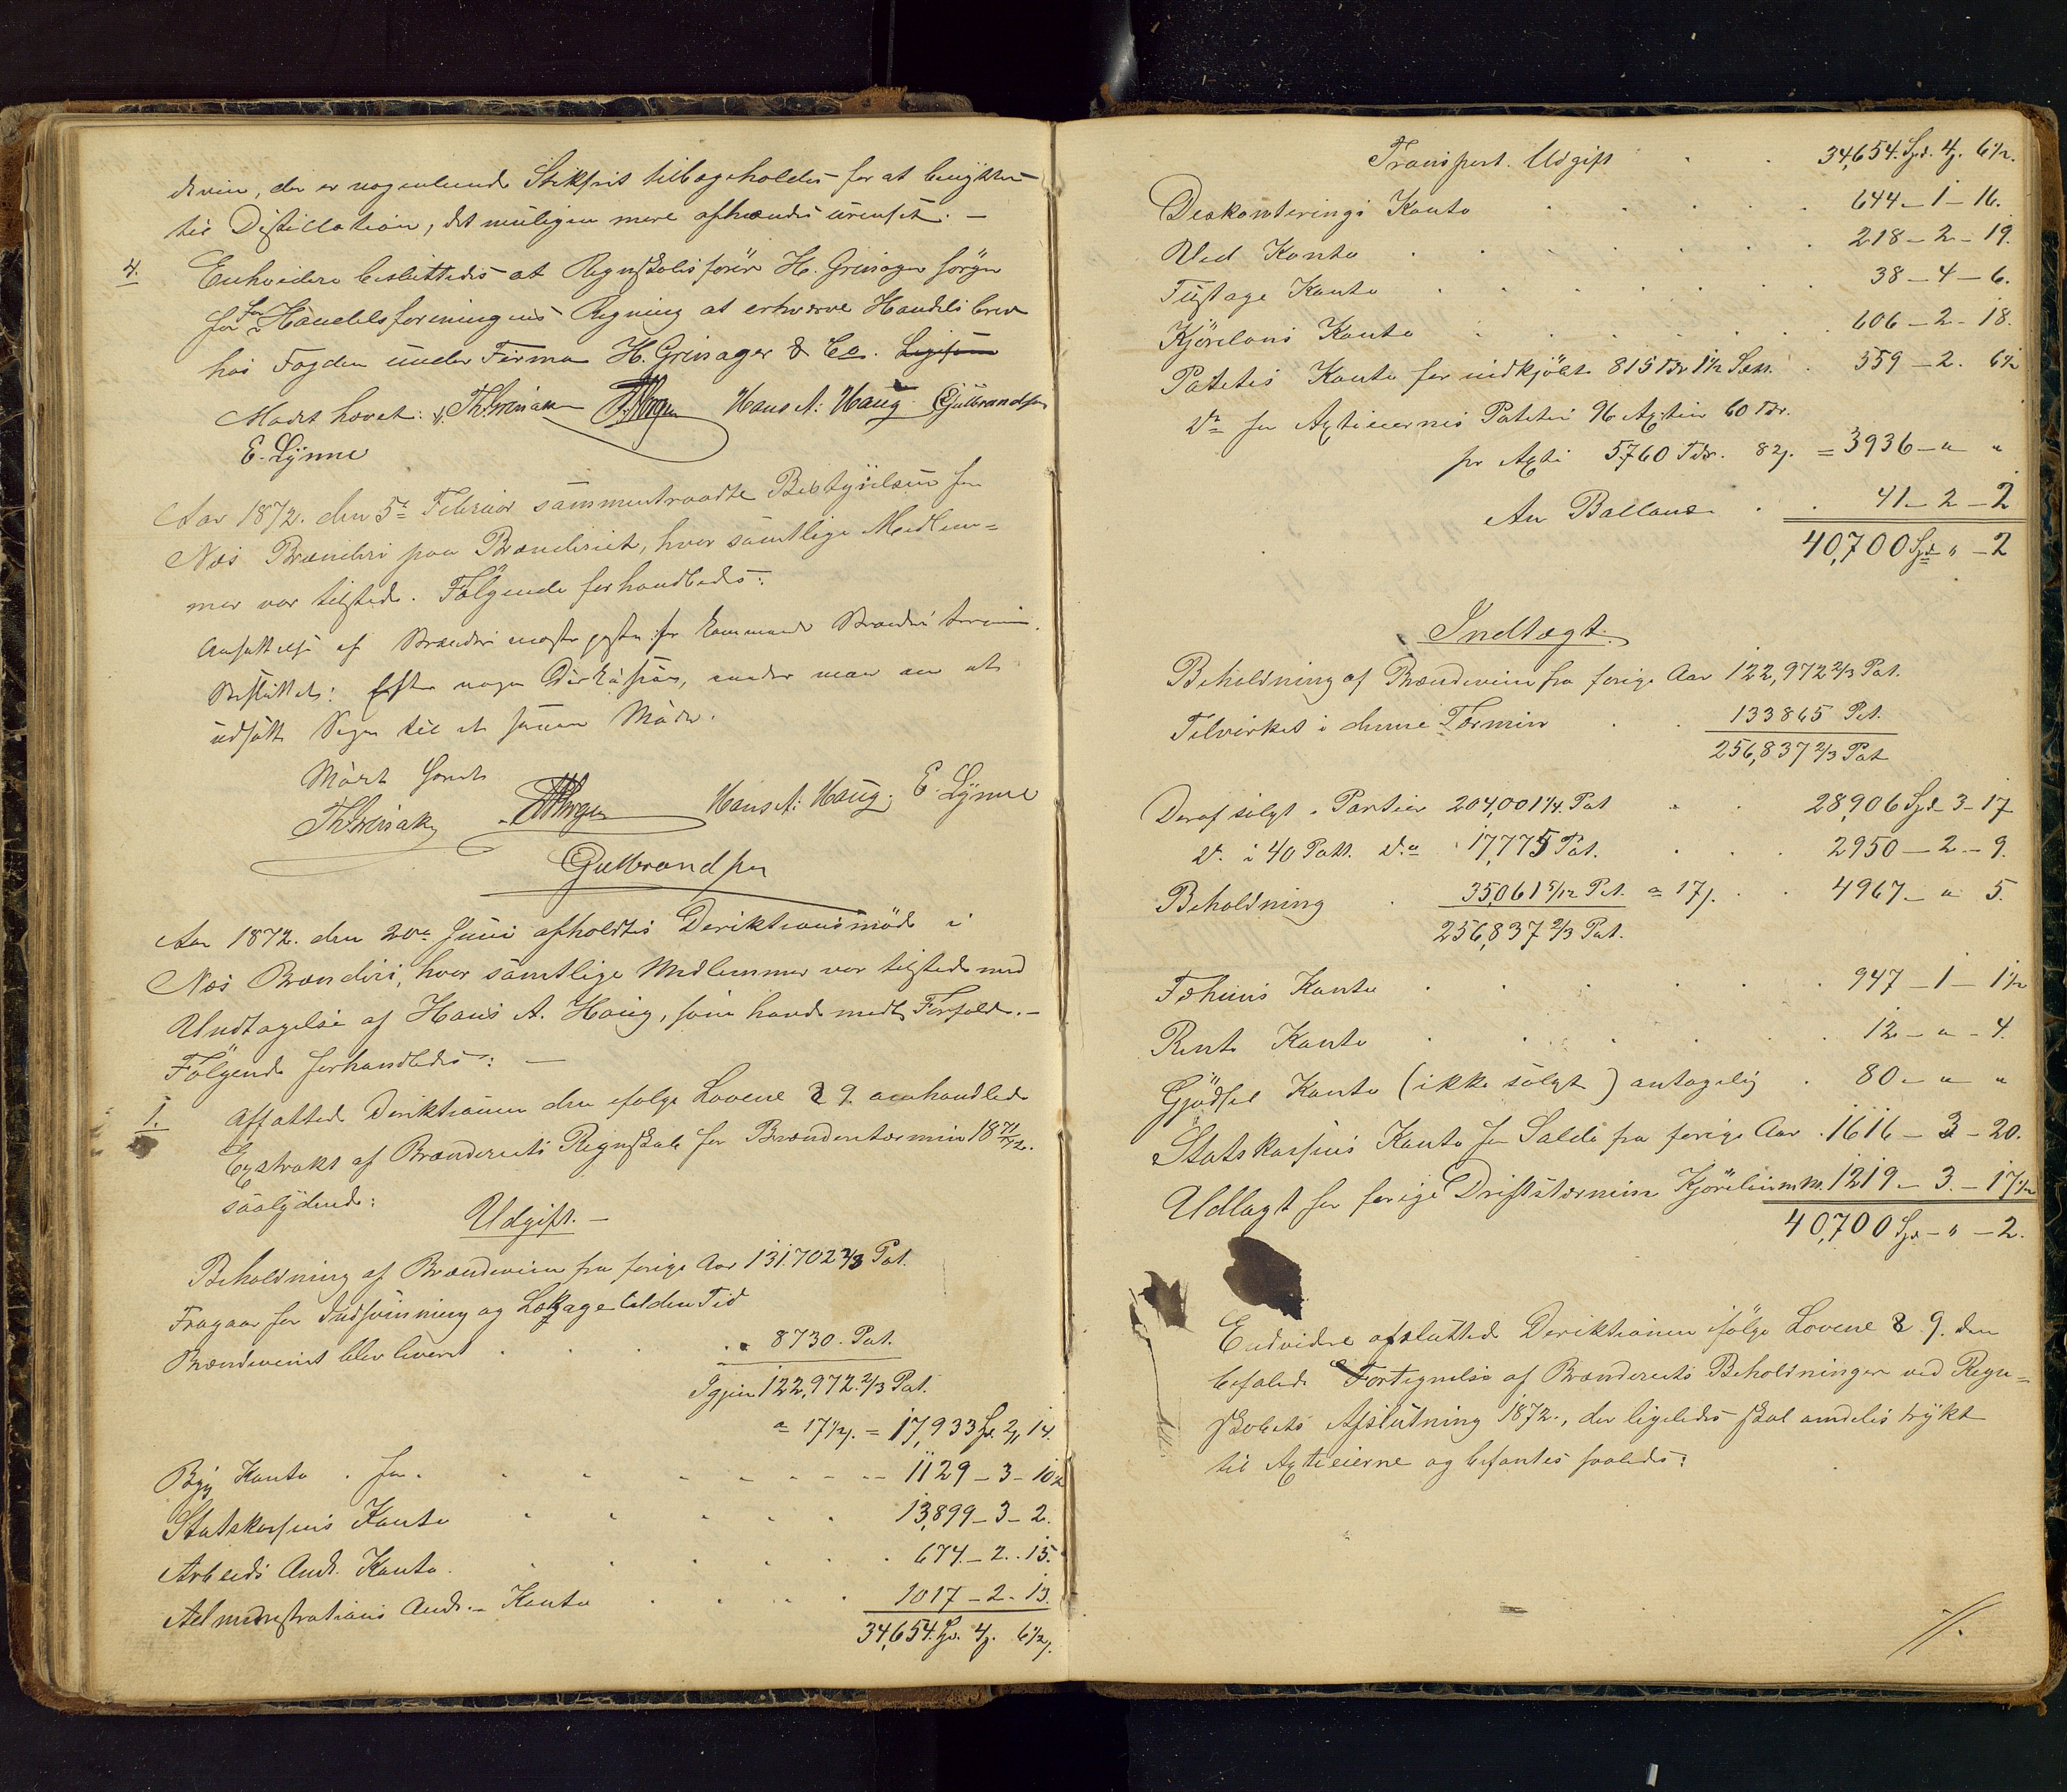 devin, der er nogenlunde Stikfrit tilbageholdes for at benyttes
til Distillation, det muligen mere afhændes urenset. –
4. Enhvidere besluttedes at Regnskabsfører H. Grinager sørger
for Handelsforeningens Regning at erhverve Handelsbrev
hos Fogden under Firma H. Grinager & Co.
Mødet hævet: Th. Grinaker Hans A. Haug Gulbrandsen
E. Lynne
Aar 1872. den 5te Februar sammentraadte Bestyrelsen for
Næs Brænderi paa Brænderiet, hvor samtlige Medlem=
mer var tilstede. Følgende forhandledes:
Ansættelse af Brænderimesterposten for kommende Brænderi termin.
Besluttet: Efter nogen Diskusion, under man an at
udsætte Sagen til et senere Møde.
Mødet hævet
Th. Grinaker Hans A. Haug. E. Lynne
Gulbrandsen
Aar 1872. den 20de Juni afholdtes Deriktionsmøde i
Næs Brænderi, hvor samtlige Medlemmer var tilstede med
Undtagelse af Hans A. Haug, som havde meldt Forfald. –
Følgende forhandledes: –
1. Affattede Deriktionen den ifølge Lovene § 9 omhandlede
Exstrakt af Brænderiets Regnskab for Brænderitermin 18 71/72.
saalydende:
Udgift. –
Beholdning af Brændeviin fra forige Aar 131.702 2/3 Pot.
Fragaar for Indsvinning og Lækage til den Tid
Brændevinet blev leveret . . . 8730. Pot.
Igjen 122,972. 2/3 Pot.
a 17 1/2 s. = 17,933 Sp. 2 14.
Byg Konto . for . 1129 – 3 – 10 1/2
Statskassens Konto 13,899 – 3 – 2.
Arbeids Ands. Konto. 674. – 2. . 15.
Administrations Ands. – Konto 1017 – 2 – 13.
34,654. Sp. 4. 6 1/2.
Transport. Udgift . . 34,654. Spd. 4. 6 1/2.
Deskonterings Konto 644 – 1 – 16.
Ved Konto 218 – 2 – 19.
Fustage Konto 38 – 4 – 6.
Kjøreløns Konto 606 – 2 – 18.
Potetes Konto for indkjøbt 815 Tdr 1 1/2 Sk. 559 – 2. 6 1/2
Do for Axtieiernes Poteter 96 Axtier 60 Tdr.
pr Axti 5760 Tdr. 82. = 3936 – " "
An Ballanse . . 41 – 2 – 2
40,700 Spd " – 2
Indtægt.
Beholdning af Brændeviin fra forige Aar 122,972 2/3 Pot.
Tilvirket i denne Termin . . 133865 Pot.
256,837 2/3 Pot
Deraf solgt i Partier 204,001 1/4. Pot 28,906 Spd. 3 – 17
Do. i 40 Pott. Do 17,775 Pot. 2950 – 2 – 9.
Beholdning . 35,061 5/12 Pot. a 17 s. 4967 – " 5.
256,837 2/3 Pot.
Tehuus Konto 947 – 1 – 1 1/2
Rente Konto 12 – " – 4.
Gjødsel Konto (ikke solgt) antagelig . 80 – " "
Statskassens Konto for Saldo fra forige Aar . 1616 – 3 – 20.
Udlagt for forige Driftstermin Kjørelønm.m. 1219 – 3. – 17 1/2
40,700 Spd – " – 2.
Endvidre afsluttede Deriktionen ifølge Lovene § 9. den
befalede Fortegnelse af Brænderiets Beholdninger ved Regn=
skabets Afslutning 1872., der ligeledes skal omdeles trykt
til Axtieierne og befantes saaledes: